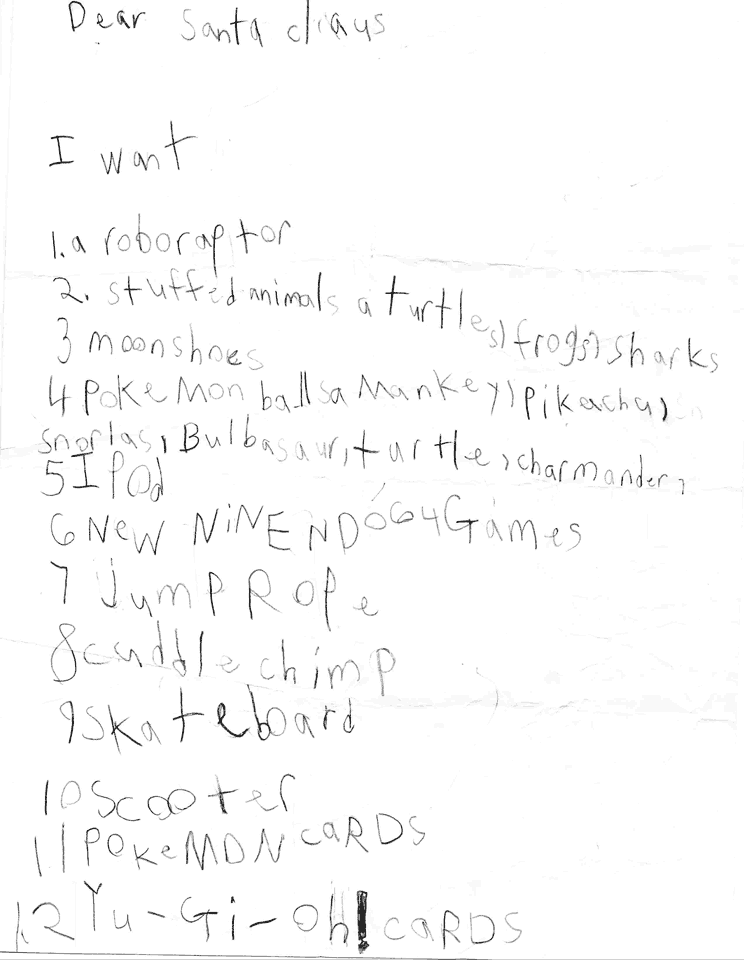 Dear Santa claus
I want
1. a roboraptor
2. stuffed animals a turtles, frogs, sharks
3 moonshoes
4 PokeMon balls a Mankey, Pikachu,
snorlas, Bulbasaur, turtle, charmander,
5 IPOd
6 New NiNENDO 64 Games
7 JumP ROPe
8 cuddle chimp
9 skateboard
10 Scooter
11 POkeMON caRDS
12 Yu-Gi-Oh! caRDS